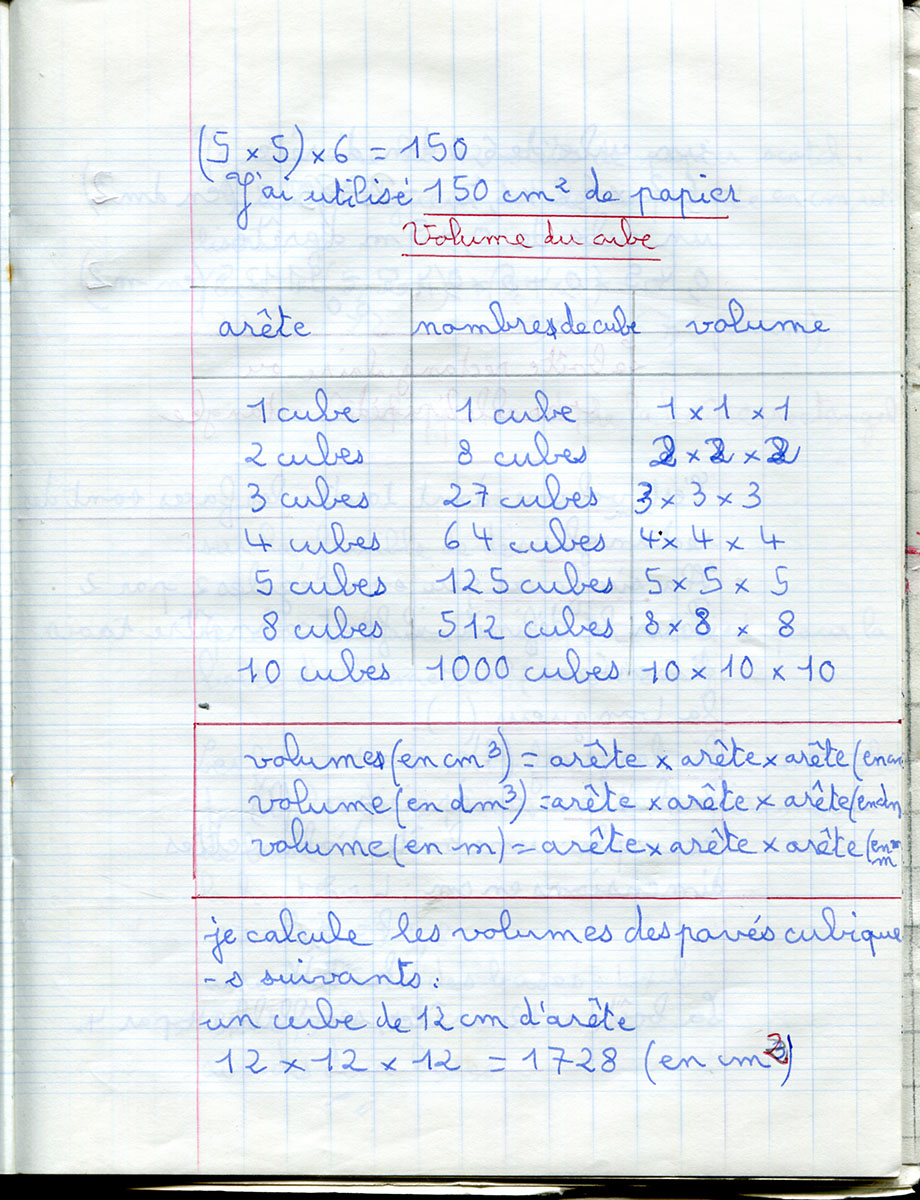 (5 × 5) × 6 = 150
J'ai utilisé 150 cm² de papier
Volume du cube
arête nombres de cube volume
1 cube 1 cube 1 × 1 × 1
2 cubes 8 cubes 2 × 2 × 2
3 cubes 27 cubes 3 × 3 × 3
4 cubes 64 cubes 4 × 4 × 4
5 cubes 125 cubes 5 × 5 × 5
8 cubes 512 cubes 8 × 8 × 8
10 cubes 1000 cubes 10 × 10 × 10
volumes (en cm³) = arête × arête × arête (en cm
volume (en dm³) = arête × arête × arête (en dm
volume (en m) = arête × arête × arête (en m
je calcule les volumes des pavés cubique
-s suivants :
un cube de 12 cm d'arête
12 × 12 × 12 = 1728 (en cm³)